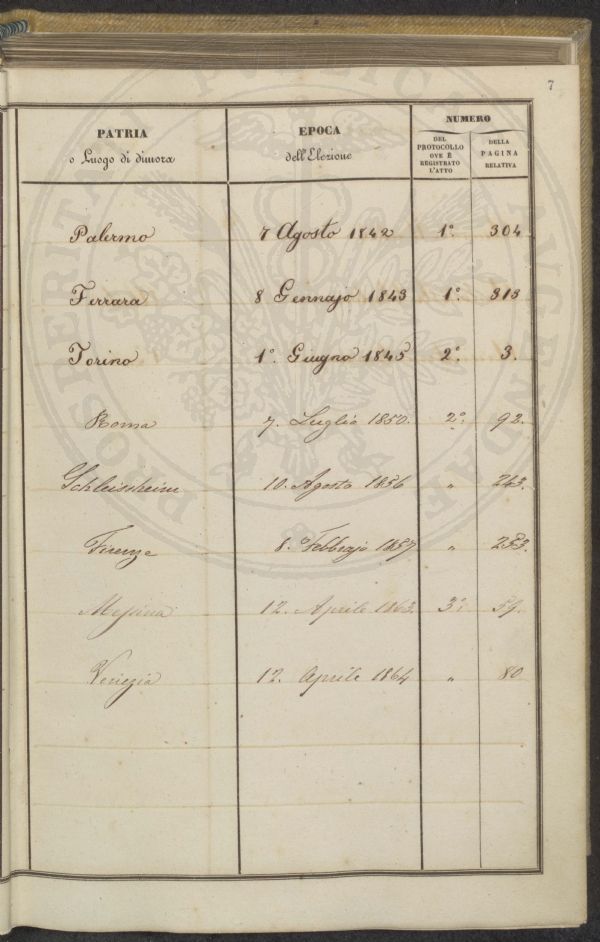 7
PATRIA
o Luogo di dimora
EPOCA
dell'Elezione
NUMERO
DEL
PROTOCOLLO
OVE È
REGISTRATO
L'ATTO
DELLA
PAGINA
RELATIVA
Palermo 7 Agosto 1842 1º. 304.
Ferrara 8 Gennajo 1843 1º. 313
Torino 1º. Giugno 1845 2º. 3.
Roma 7. Luglio 1850. 2º. 92.
Schleissheim 10. Agosto 1856 " 243.
Firenze 8. Febbrajo 1857 " 253.
Messina 12. Aprile 1863. 3º. 59.
Venezia 12. Aprile 1864 " 80